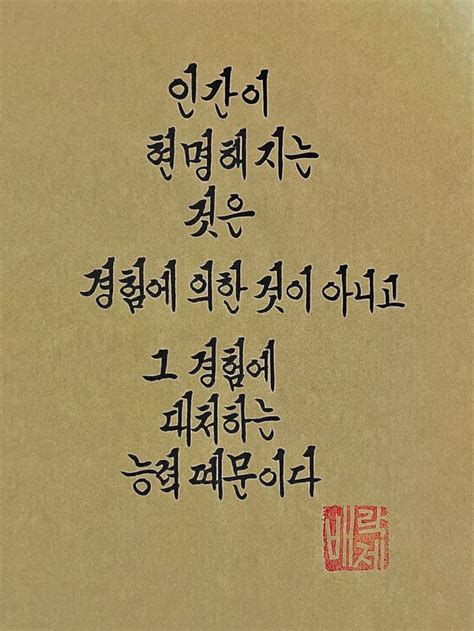 인간이
현명해 지는
것은
경험에 의한 것이 아니고
그 경험에
대처하는
능력 때문이다